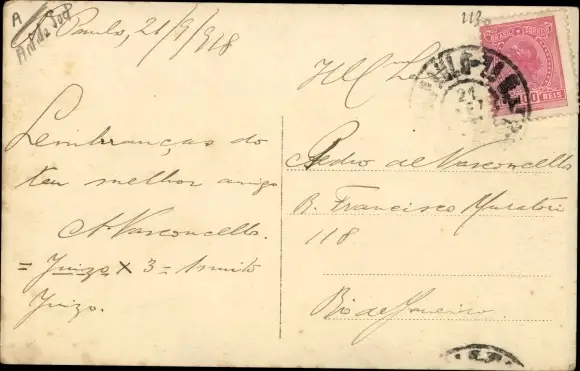 A
S. Paulo, 21/9/918
Lembranças do
teu melhor amigo
A. Vasconcellos.
= Juizo x 3 = muito
Juizo.
113
BRASIL CORREIO
100 REIS
21
Illm
Pedro de Vasconcellos
R. Francisco Muratori
118
Rio de Janeiro.